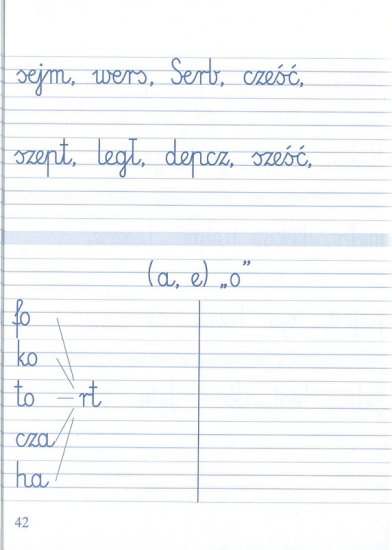 sejm, wers, Serb, cześć,
szept, legł, depcz, sześć,
(a, e) „o”
fo
ko
to – rt
cza
ha
42